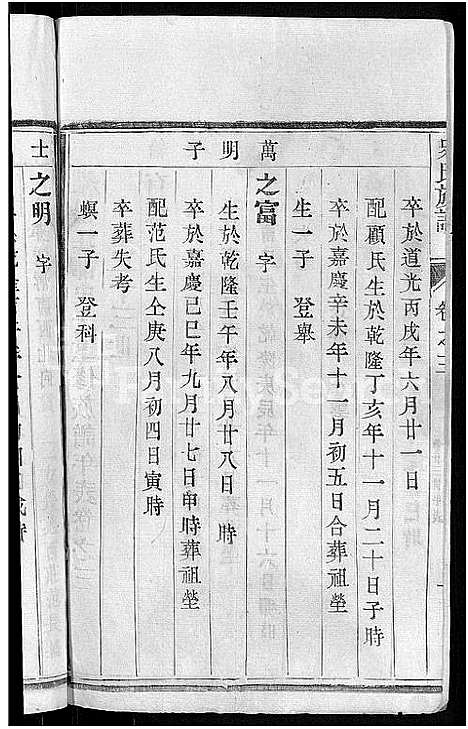 氏族譜 卷之三
卒於道光丙戌年六月廿一日
配顧氏生於乾隆丁亥年十一月二十日子時
卒於嘉慶辛未年十一月初五日合葬祖塋
生一子 登舉
萬明子
之富 字
生於乾隆壬午年八月廿八日 時
卒於嘉慶己巳年九月廿七日申時葬祖塋
配范氏生仝庚八月初四日寅時
卒葬失考
螟一子 登科
士
之明 字